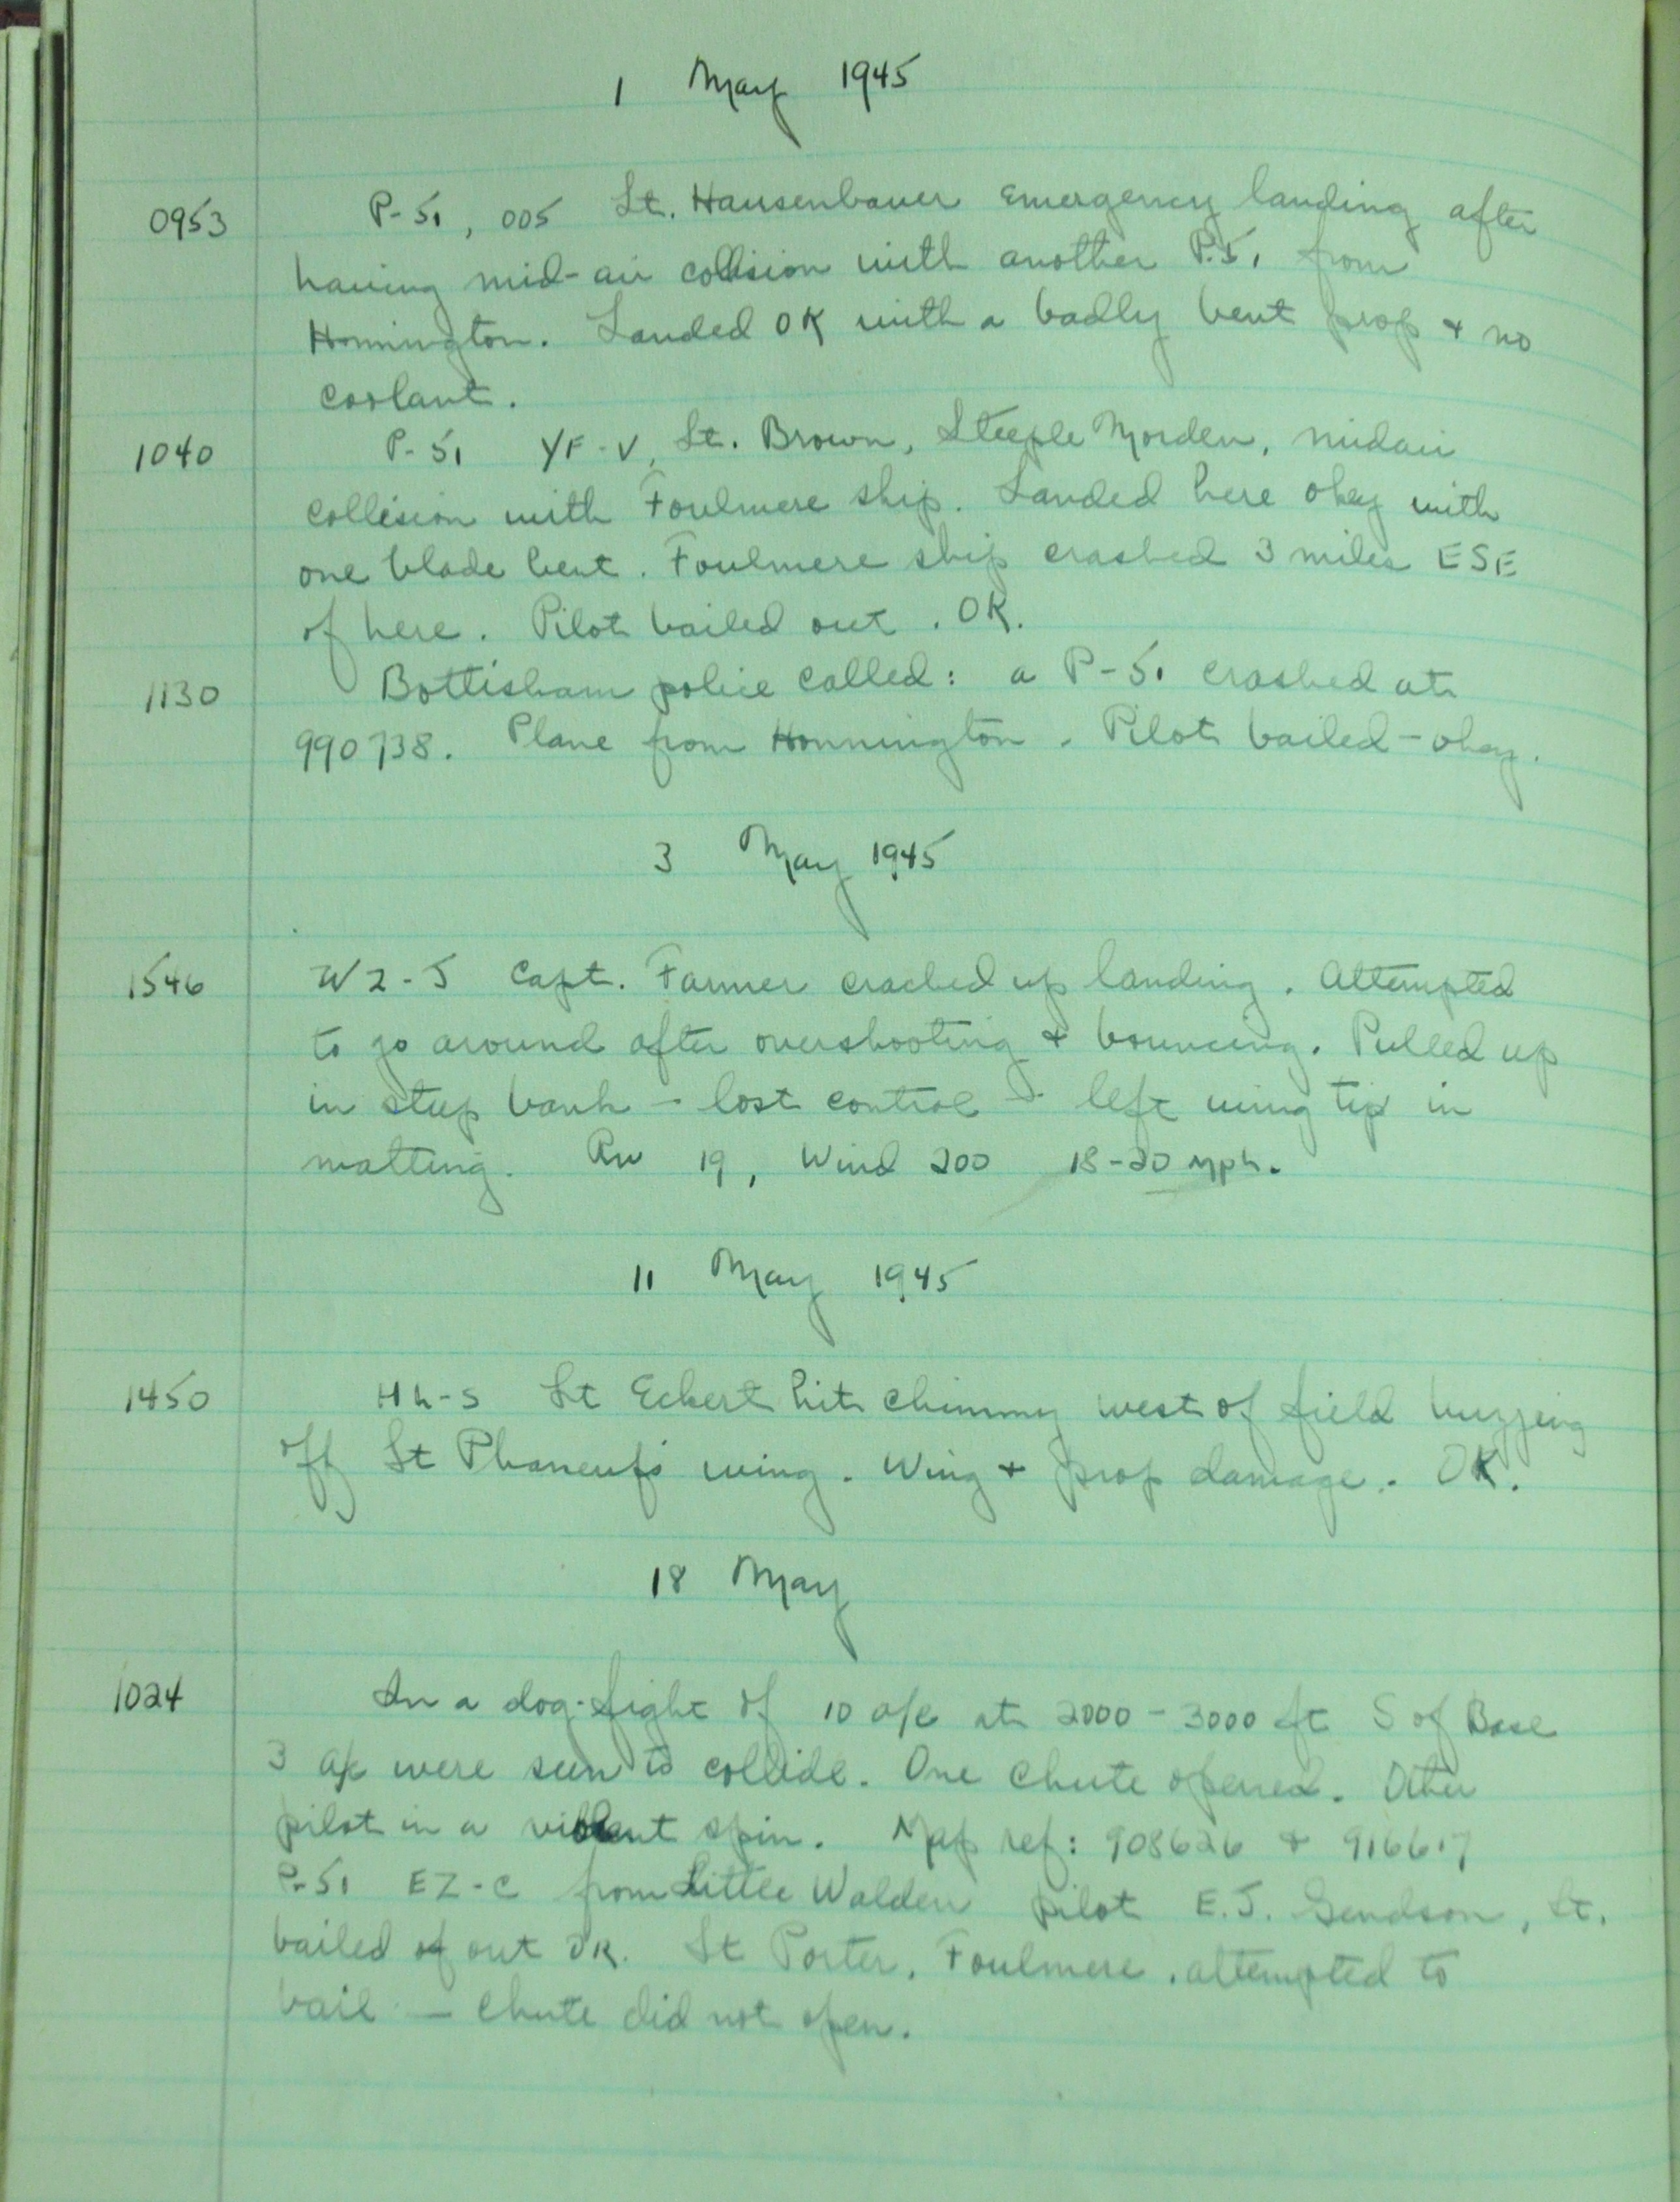 1 May 1945
0953 P-51, 005 Lt. Hausenbauer emergency landing after
having mid-air collision with another P-51 from
Honnington. Landed OK with a badly bent prop + no
coolant.
1040 P-51 YF-V, Lt. Brown, Steeple Morden, midair
collision with Foulmere ship. Landed here okay with
one blade bent. Foulmere ship crashed 3 miles ESE
of here. Pilot bailed out. OK.
1130 Bottisham police called: a P-51 crashed at
990738. Plane from Honnington. Pilot bailed - okay.
3 May 1945
1546 WZ-J Capt. Farmer cracked up landing. Attempted
to go around after overshooting & bouncing. Pulled up
in steep bank - lost control & left wing tip in
matting. RW 19, Wind 200 18-20 mph.
11 May 1945
1450 HL-S Lt Eckert hit chimmy west of field buzzing
off Lt Phaneuf's wing. Wing + prop damage. OK.
18 May
1024 In a dog-fight of 10 a/c at 2000 - 3000 ft S of Base
3 a/c were seen to collide. One chute opened. Other
pilot in a violent spin. Map ref: 908626 & 916617
P-51 EZ-C from Little Walden pilot E.J. , Lt.
bailed out OK. Lt Porter, Foulmere, attempted to
bail - chute did not open.